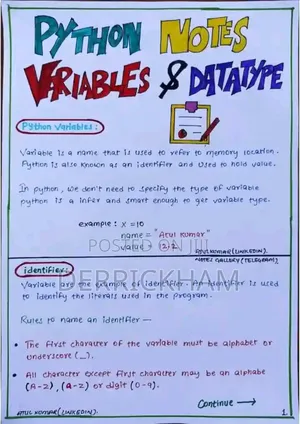 PYTHON NOTES
VARIABLES & DATATYPE
Python Variables :
Variable is a name that is used to refer to memory location.
Python is also known as an identifier and used to hold value.
In python, we don't need to specify the type of variable
python is a infer and smart enough to get variable type.
example : x = 10
name = "Atul Kumar"
value = 12.2
POSTED ON JIJI
ATUL KUMAR (LINKEDIN).
NOTES GALLERY (TELEGRAM)
DERRICKHAM
identifier :
Variable are the example of identifier. An Identifier is used
to identify the literals used in the program.
Rules to name an identifier —
• The first character of the variable must be alphabet or
underscore (_).
• All character except first character may be an alphabe
(A-Z), (a-z) or digit (0-9).
Continue →
ATUL KUMAR (LINKEDIN).
1.